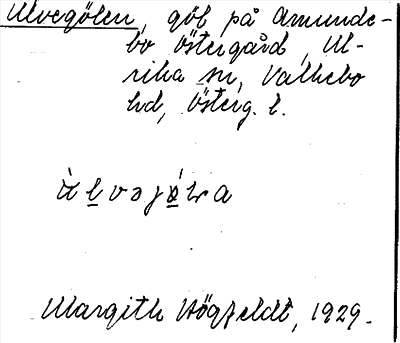 Ulvegölen, göl på Amunde-
bo Östergård, Ul-
rika sn, Valkebo
hd, Österg. l.
Margith Högfeldt, 1929.